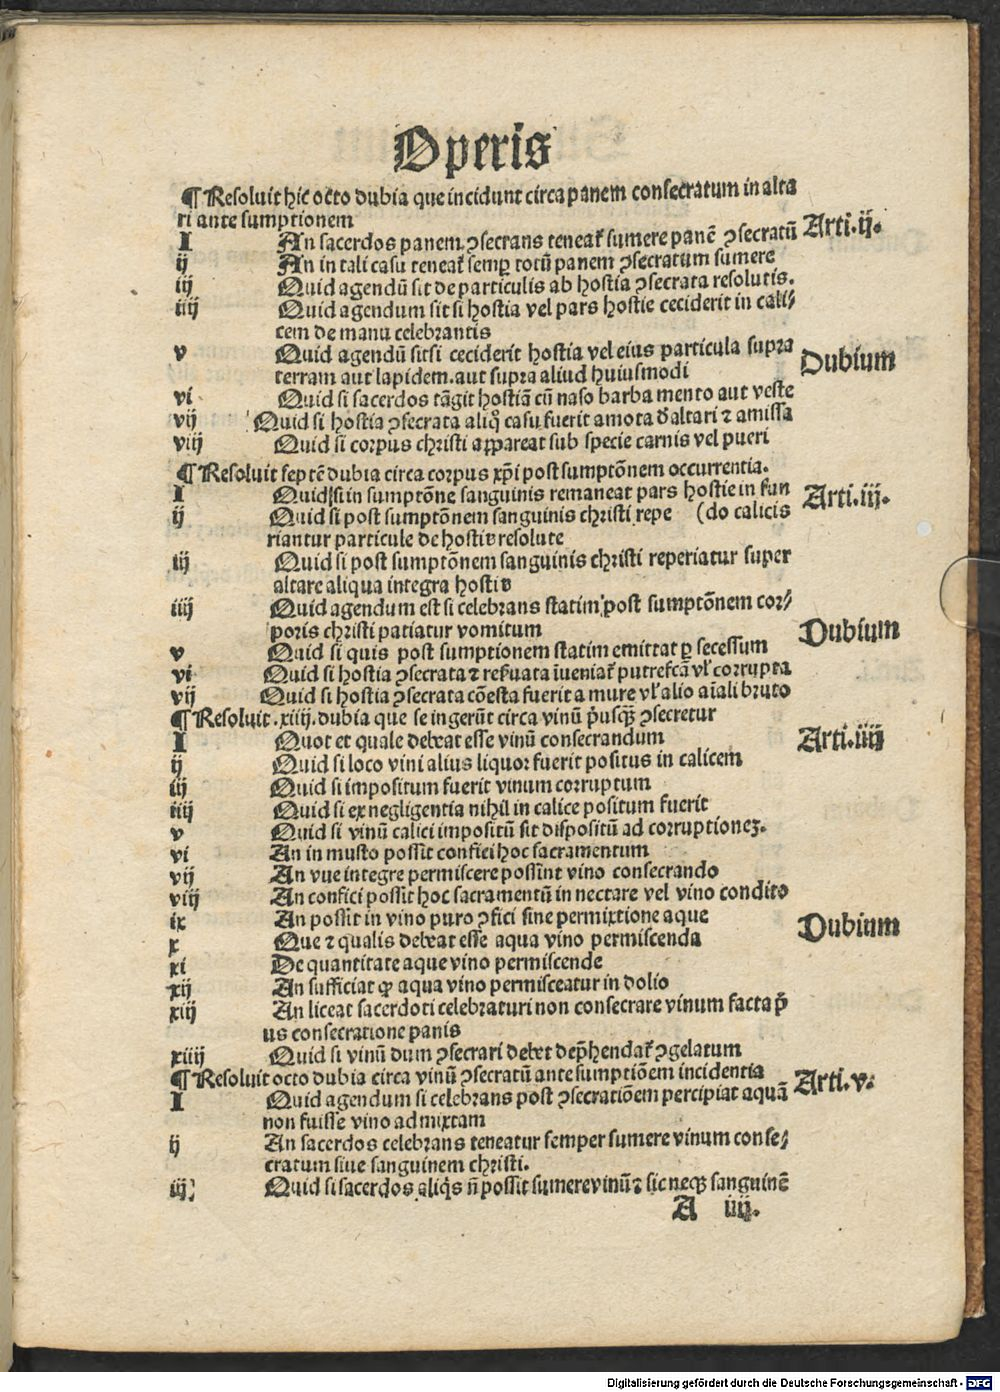 Operis
¶ Resoluit hic octo dubia que incidunt circa panem consecratum in alta
ri ante sumptionem
Arti.ij.
I An sacerdos panem ꝯsecrans teneat᷑ sumere panē ꝯsecratū
ij An in tali casu teneat᷑ semꝑ totū panem ꝯsecratum sumere
iij Quid agendū sit de particulis ab hostia ꝯsecrata resolutis.
iiij Quid agendum sit si hostia vel pars hostie ceciderit in cali⸗
cem de manu celebrantis
v Quid agendū sit si ceciderit hostia vel eius particula supra
Dubium
terram aut lapidem. aut supra aliud huiusmodi
vi Quid si sacerdos tāgit hostiā cū naso barba mento aut veste
vij Quid si hostia ꝯsecrata aliq̄ casu fuerit amota d̄ altari ⁊ amissa
viij Quid si corpus christi appareat sub specie carnis vel pueri
¶ Resoluit septē dubia circa corpus xp̄i post sumptōnem occurrentia.
I Quid si in sumptōne sanguinis remaneat pars hostie in fun
Arti.iij.
ij Quid si post sumptōnem sanguinis christi repe (do calicis
riantur particule de hostia resolute
iij Quid si post sumptōnem sanguinis christi reperiatur super
altare aliqua integra hostia
iiij Quid agendum est si celebrans statim post sumptōnem cor⸗
poris christi patiatur vomitum
Dubium
v Quid si quis post sumptionem statim emittat ꝑ secessum
vi Quid si hostia ꝯsecrata ⁊ reẜuata īueniat᷑ putrefc̄a vl᷑ corrupta
vij Quid si hostia ꝯsecrata cōesta fuerit a mure vl᷑ alio aīali bruto
¶ Resoluit .xiiij. dubia que se ingerūt circa vinū p̄usq̄ ꝯsecretur
I Quot et quale debeat esse vinū consecrandum
Arti.iiij
ij Quid si loco vini alius liquor fuerit positus in calicem
iij Quid si impositum fuerit vinum corruptum
iiij Quid si ex negligentia nihil in calice positum fuerit
v Quid si vinū calici impositū sit dispositū ad corruptioneꝫ.
vi An in musto possit confici hoc sacramentum
vij An vue integre permiscere possint vino consecrando
viij An confici possit hoc sacramentū in nectare vel vino condito
ix An possit in vino puro ꝯfici sine permixtione aque
Dubium
x Que ⁊ qualis debeat esse aqua vino permiscenda
xi De quantitate aque vino permiscende
xij An sufficiat ꝙ aqua vino permisceatur in dolio
xiij An liceat sacerdoti celebraturi non consecrare vinum facta p̄
us consecratione panis
xiiij Quid si vinū dum ꝯsecrari debet dep̄hendat᷑ ꝯgelatum
¶ Resoluit octo dubia circa vinū ꝯsecratū ante sumptiōem incidentia
Arti.v.
I Quid agendum si celebrans post ꝯsecratiōem percipiat aquā
non fuisse vino admixtam
ij An sacerdos celebrans teneatur semper sumere vinum conse⸗
cratum siue sanguinem christi.
iij Quid si sacerdos aliq̇s n̄ possit sumere vinū ⁊ sic neqꝫ sanguinē
A iiij.
Digitalisierung gefördert durch die Deutsche Forschungsgemeinschaft - DFG